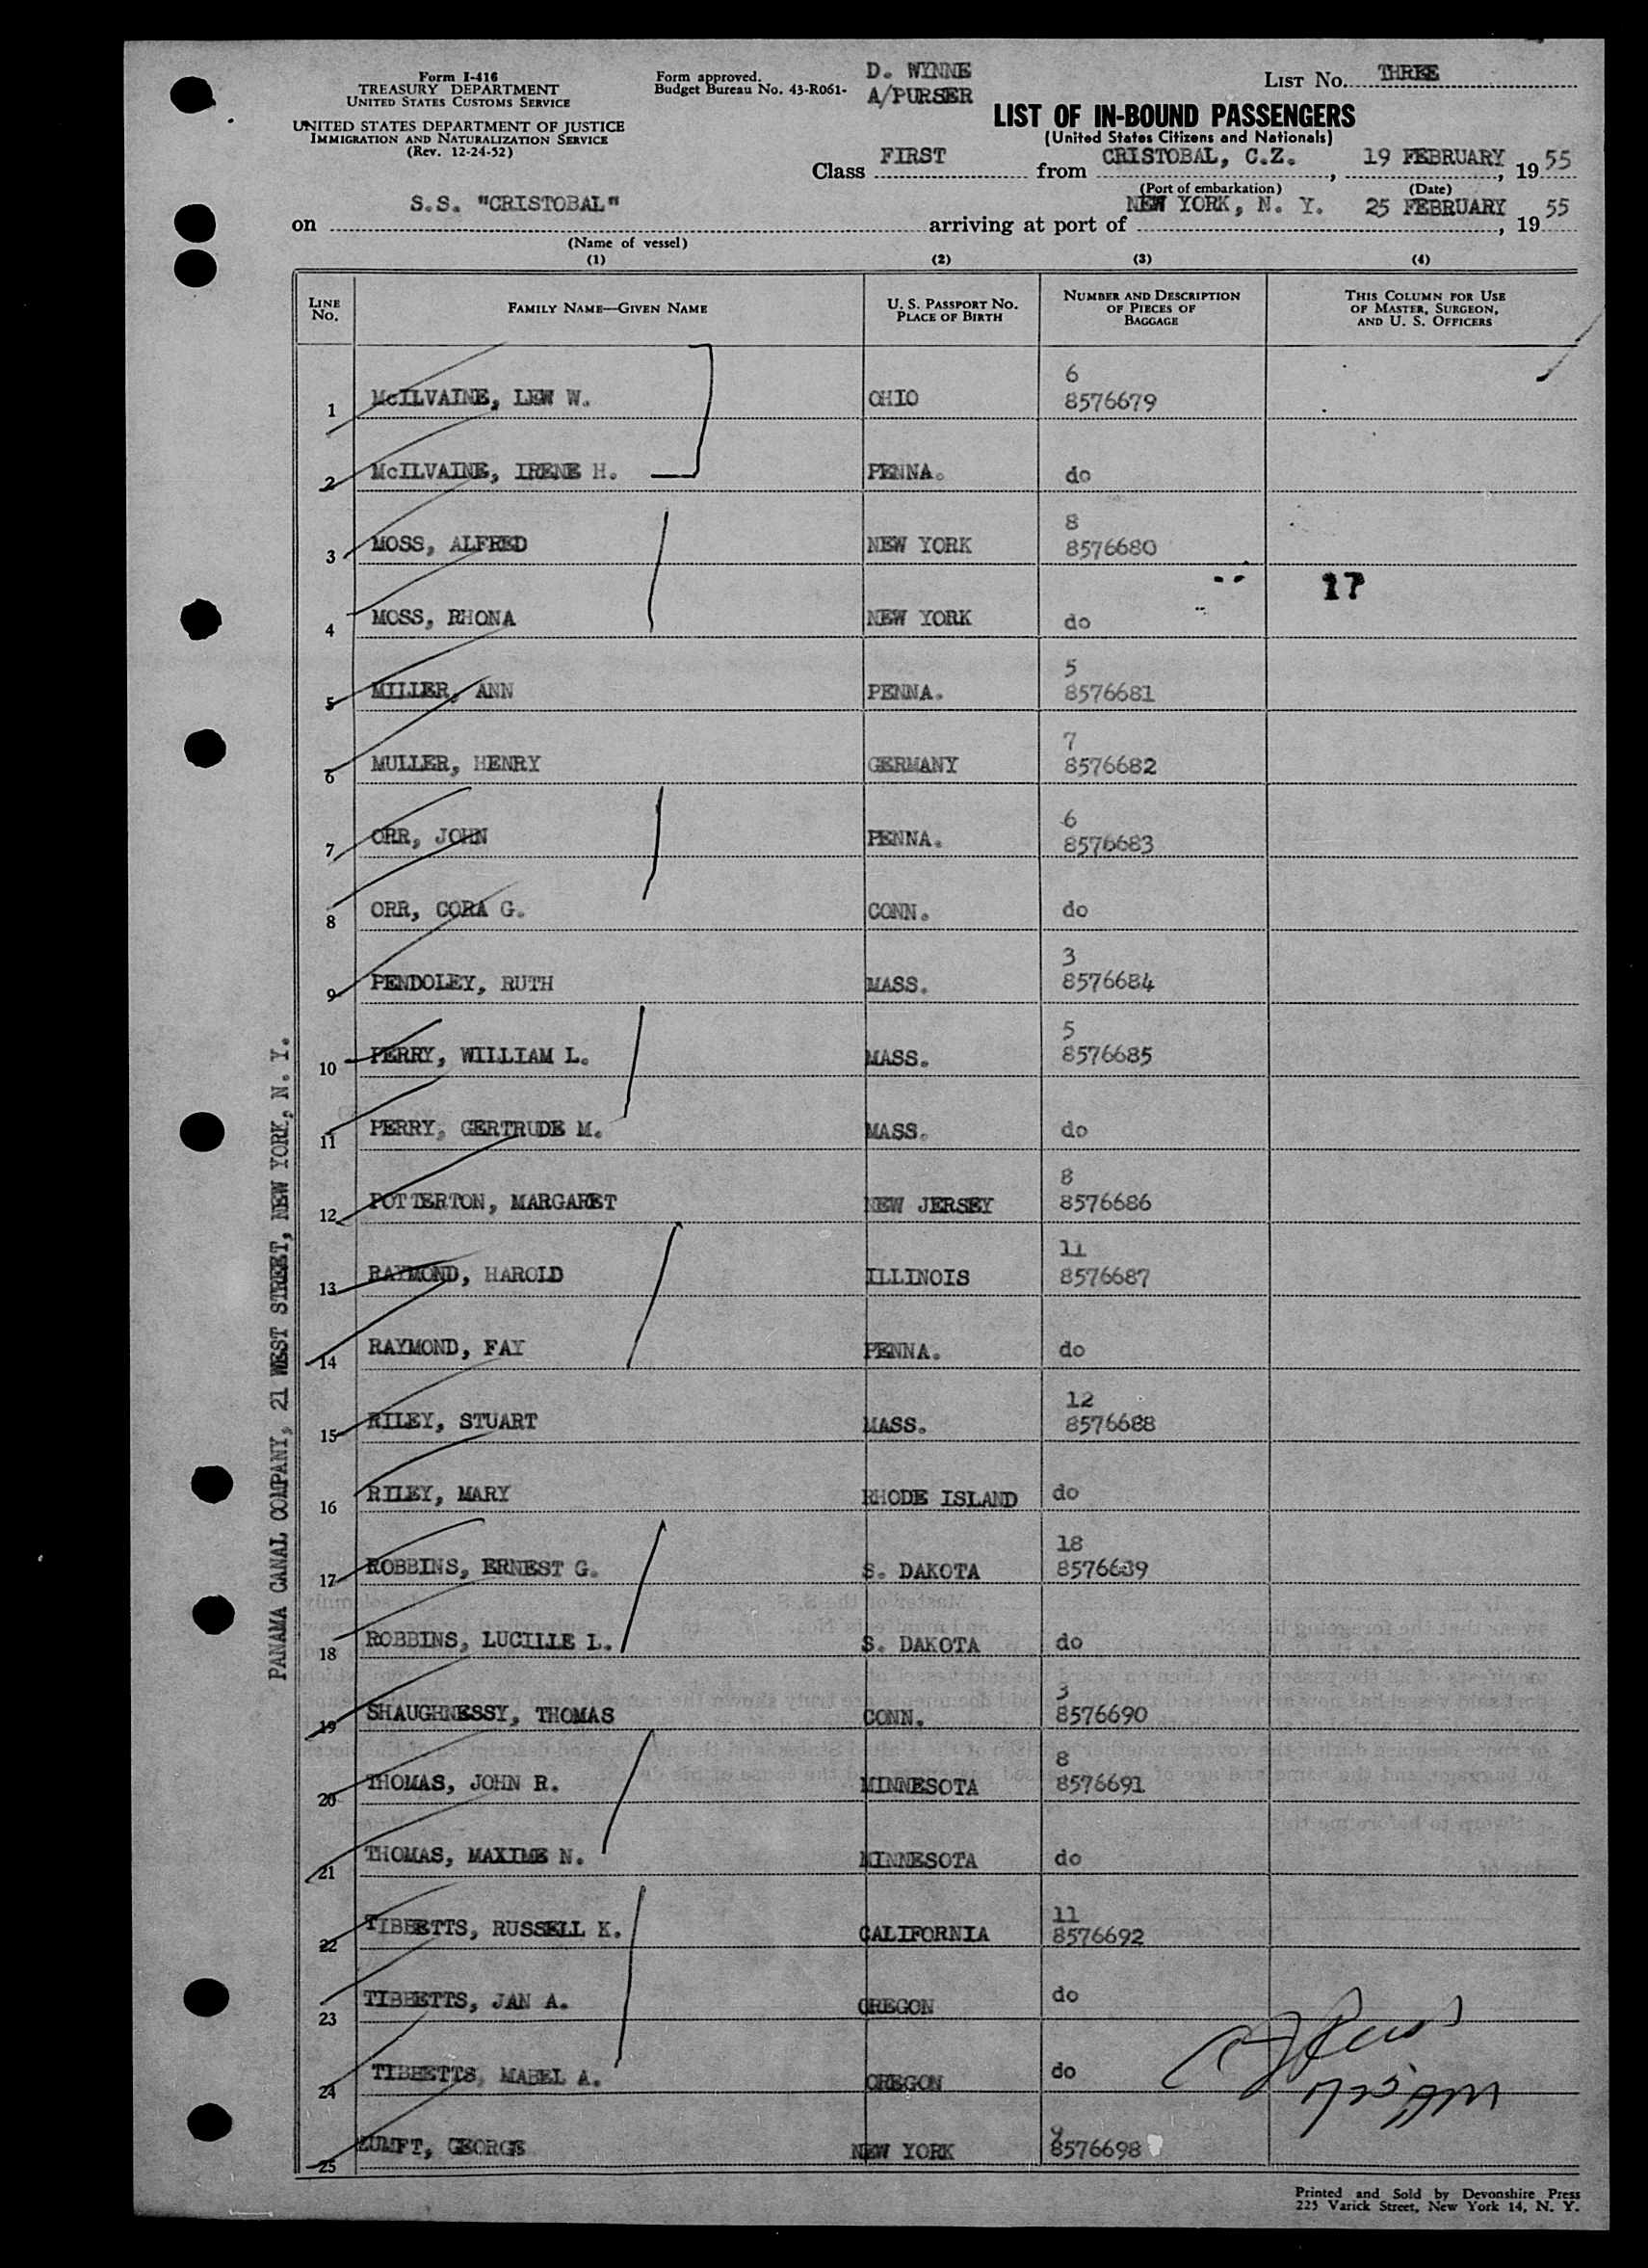 Form I-416
TREASURY DEPARTMENT
UNITED STATES CUSTOMS SERVICE
UNITED STATES DEPARTMENT OF JUSTICE
IMMIGRATION AND NATURALIZATION SERVICE
(Rev. 12-24-52)
Form approved.
Budget Bureau No. 43-R061-
D. WYNNE
A/PURSER
LIST No. THREE
LIST OF IN-BOUND PASSENGERS
(United States Citizens and Nationals)
Class FIRST from CRISTOBAL, C.Z. , 19 FEBRUARY , 19 55
(Port of embarkation) (Date)
on S.S. "CRISTOBAL" arriving at port of NEW YORK, N. Y. 25 FEBRUARY , 19 55
(Name of vessel)
(1) (2) (3) (4)
LINE No. FAMILY NAME—GIVEN NAME U. S. PASSPORT NO. PLACE OF BIRTH NUMBER AND DESCRIPTION OF PIECES OF BAGGAGE THIS COLUMN FOR USE OF MASTER, SURGEON, AND U. S. OFFICERS
6
1 McILVAINE, LEW W. OHIO 8576679
2 McILVAINE, IRENE H. PENNA. do
8
3 MOSS, ALFRED NEW YORK 8576680
17
4 MOSS, RHONA NEW YORK do
5
5 MILLER, ANN PENNA. 8576681
7
6 MULLER, HENRY GERMANY 8576682
6
7 ORR, JOHN PENNA. 8576683
8 ORR, CORA G. CONN. do
3
9 PENDOLEY, RUTH MASS. 8576684
5
10 PERRY, WILLIAM L. MASS. 8576685
11 PERRY, GERTRUDE M. MASS. do
8
12 POTTERTON, MARGARET NEW JERSEY 8576686
11
13 RAYMOND, HAROLD ILLINOIS 8576687
14 RAYMOND, FAY PENNA. do
12
15 RILEY, STUART MASS. 8576688
16 RILEY, MARY RHODE ISLAND do
18
17 ROBBINS, ERNEST G. S. DAKOTA 8576689
18 ROBBINS, LUCILLE L. S. DAKOTA do
3
19 SHAUGHNESSY, THOMAS CONN. 8576690
8
20 THOMAS, JOHN R. MINNESOTA 8576691
21 THOMAS, MAXIME N. MINNESOTA do
11
22 TIBBETTS, RUSSELL K. CALIFORNIA 8576692
23 TIBBETTS, JAN A. OREGON do
24 TIBBETTS, MABEL A. OREGON do
9
25 ZUMFT, GEORGE NEW YORK 8576698
PANAMA CANAL COMPANY, 21 WEST STREET, NEW YORK, N. Y.
Printed and Sold by Devonshire Press
225 Varick Street, New York 14, N. Y.